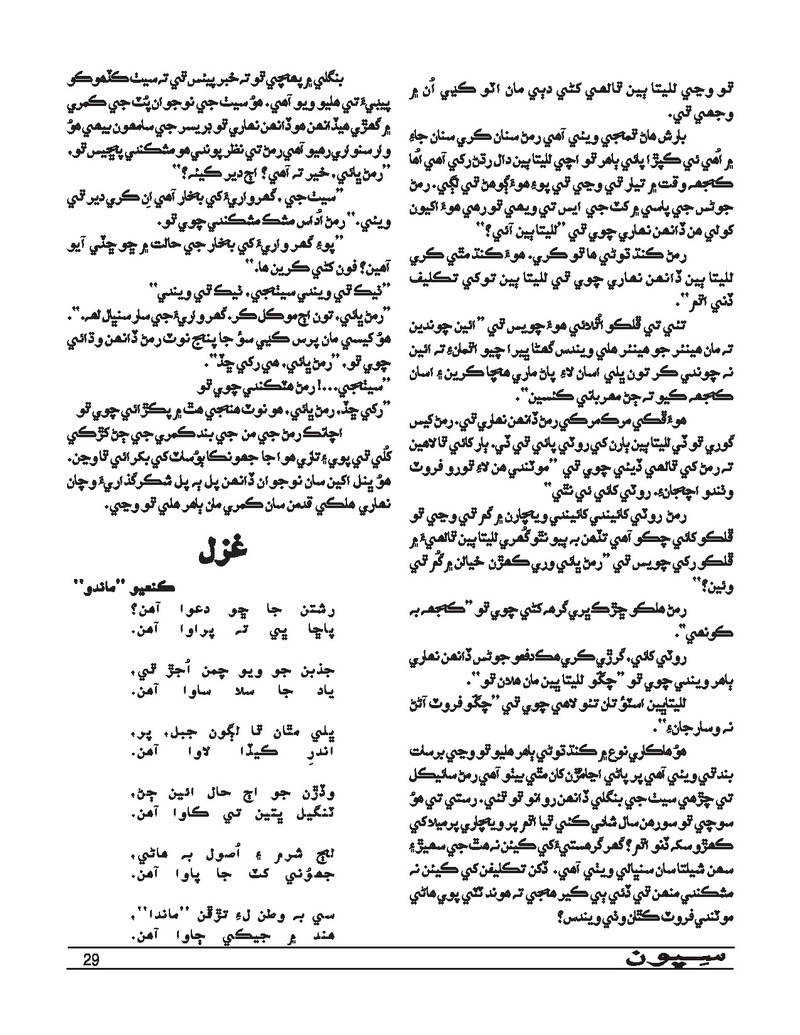 ٿو وڃي للیتا ٻين ٿالهي کڻي دٻي مان اٽو ڪڍي اُن ۾
وجهي ٿي.
بارش هاڻ ٿمجي ويئي آهي رمڻ سنان ڪري سنان جاءِ
۾ اُهي ئي ڪپڙا پائي ٻاهر ٿو اچي لليتا ٻين دال رڌڻ رکي آهي اُها
ڪجهه وقت ۾ تيار ٿي وڃي ٿي پوءِ هوءَ ڳوهڻ ٿي لڳي. رمڻ
جوڻس جي پاسي ۾ کٽ جي ايس تي ويهي ٿو رهي هوءَ اکيون
کولي هن ڏانهن نهاري چوي ٿي ”لليتا ٻين آئي؟“
رمڻ ڪنڌ ڌوڻي ها ٿو ڪري. هوءَ ڪنڌ مٿي ڪري
لليتا ٻين ڏانهن نهاري چوي ٿي لليتا ٻين توکي تڪليف
ڏني اٿم“.
تئي تي ڦلڪو اُٿلائي هوءَ چويس ٿي ”ائين چوندين
ته مان هينئر جو هينئر هلي وينديس گهڻا ڀيرا چيو اٿمانءِ ته ائين
نه چوندي ڪر تون ڀلي اسان لاءِ پاڻ ماري هڃا ڪرين ۽ اسان
ڪجهه ڪيو ته ڄڻ مهرباني ڪئسين“.
هوءَ ڦڪي مرڪ مرڪي رمڻ ڏانهن نهاري ٿي. رمڻ کيس
گوري ٿو ڏي لليتا ٻين ٻارن کي روٽي پائي ٿي ڏي. ٻار کائي ٿا لاهين
ته رمڻ کي ٿالهي ڏيندي چوي ٿي ”موٽندي هن لاءِ ٿورو فروٽ
وٺندو اچجانءِ. روٽي کائي ئي نٿي“
رمڻ روٽي کائيندي کائيندي ويچارن ۾ گم ٿي وڃي ٿو
ڦلڪو کائي چڪو آهي تڏهن به ٻيو نٿو گُهري لليتا ٻين ٿالهيءَ ۾
ڦلڪو رکي چويس ٿي ”رمڻ ڀائي وري ڪهڙن خيالن ۾ گُم ٿي
وئين؟“
رمڻ هلڪو ڇڙڪ ڀري گرهه کڻي چوي ٿو ”ڪجهه به
ڪونهي“.
روٽي کائي، گرڙي ڪري هڪ دفعو جوڻس ڏانهن نهاري
ٻاهر ويندي چوي ٿو ”چڱو لليتا ٻين مان هلان ٿو“.
لليتا ٻين اسٽوُ تان تئو لاهي چوي ٿي ”چڱو فروٽ آڻڻ
نه وسارجانءِ“.
هوُ هاڪاري نوع ۾ ڪنڌ ڌوڻي ٻاهر هليو ٿو وڃي برسات
بند ٿي ويئي آهي پر پاڻي اڃا مڙن کان مٿي بيٺو آهي رمڻ سائيڪل
تي چڙهي سيٺ جي بنگلي ڏانهن روانو ٿو ٿئي. رستي تي هوُ
سوچي ٿو سورهن سال شادي ڪئي ٿيا اٿم پر ويچاري پرميلا کي
ڪهڙو سک ڏنو اٿم؟ گهر گرهستيءَ کي ڪيئن نه هٿ جي سهپڙ ۽
سهن شيلتا سان سنڀالي ويٺي آهي. ڏکن تڪليفن کي ڪيئن نه
مشڪندي منهن ٿي ڏئي ٻي ڪير هجي ته هوند ڏٽي پوي هاڻي
موٽندي فروٽ ڪٿان وٺي ويندس؟
بنگلي ۾ پهچي ٿو ته خبر پيئس ٿي ته سيٺ ڪٿهوڪو
پيڊيءَ تي هليو ويو آهي. هوُ سيٺ جي نوجوان پُٽ جي ڪمري
۾ گهڙي هيڏانهن هوڏانهن نهاري ٿو ڊريسر جي سامهون بيهي هوُ
وار سنواري رهيو آهي رمڻ تي نظر پوندي هو مشڪندي پڇيس ٿو،
”رمڻ ڀائي، خير ته آهي؟ اڄ دير ڪيئه؟“
”سيٺ جي، گهر واريءَ کي بخار آهي اِن ڪري دير ٿي
ويئي.“ رمڻ اُداس مشڪ مشڪندي چوي ٿو.
”پوءِ گهر واريءَ کي بخار جي حالت ۾ ڇو ڇڏي آيو
آهين؟ فون کڻي ڪرين ها.“
”ٺيڪ ٿي ويندي سيٺجي، ٺيڪ ٿي ويندي“
”رمڻ ڀائي، تون اڄ موڪل ڪر. گهر واريءَ جي سار سنڀال لهه.“.
هوُ کيسي مان پرس ڪڍي سؤ جا پنج نوٽ رمڻ ڏانهن وڌائي
چوي ٿو، ”رمڻ ڀائي، هي رکي ڇڏ“.
”سيٺجي...! رمڻ هٽڪندي چوي ٿو
”رکي ڇڏ، رمڻ ڀائي، هو نوٽ منهجي هٿ ۾ پڪڙائي چوي ٿو
اچانڪ رمڻ جي من جي بند ڪمري جي ڄڻ کڙڪي
کُلي ٿي پوي ۽ تازي هوا جا جهونڪا ٻوُساٽ کي بکرائي ٿا وڃن.
هوُ ڀنل اکين سان نوجوان ڏانهن پل ٻه پل شڪرگذاريءَ وچان
نهاري هلڪي قدمن سان ڪمري مان ٻاهر هلي ٿو وڃي.
غزل
ڪنهيو ”ماندو“
رشتن جا ڇو دعوا آهن؟
پاڇا ڀي ته پراوا آهن.
جذبن جو ويو چمن اُجڙ ٿي،
ياد جا سلا ساوا آهن.
ڀلي مٿان ٿا لڳون جبل، پر،
اندرِ ڪيڏا لاوا آهن.
وڏڙن جو اڄ حال ائين ڄڻ،
ٽنگيل ڀتين تي ڪاوا آهن.
لڄ شرم ۽ اُصول به هاڻي،
جهوُني کٽ جا پاوا آهن.
سي به وطن لءِ تڙڦن ”ماندا“،
هند ۾ جيڪي ڄاوا آهن.
29
سِپون